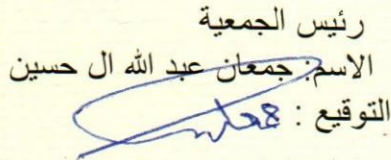 رئيس الجمعية
الاسم: جمعان عبد الله ال حسين
التوقيع :